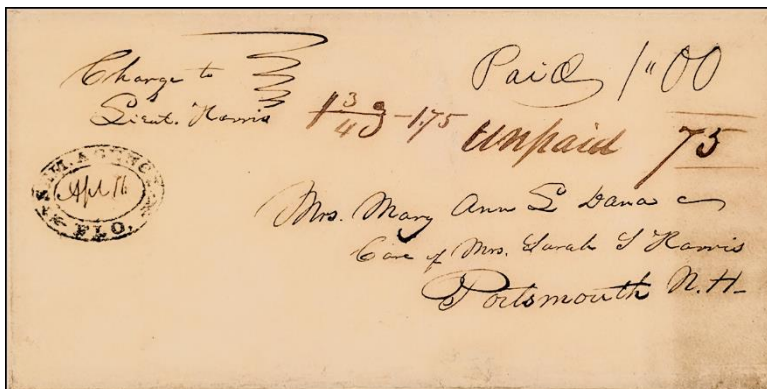 Charge to
Lieut. Harris
Paid 1"00
1 3/4 3 - 1.75
Unpaid 75
U.S.M. AGENCY
Apl 16
FLO.
Mrs. Mary Ann L Dana
Care of Mrs. Sarah S Harris
Portsmouth N.H.